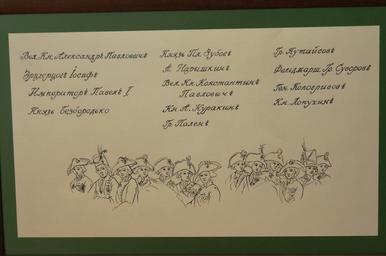 Вел. Кн. Александръ Павловичъ
Эрцгерцогъ Iосифъ
Императоръ Павелъ I
Князь Безбородько
Князь Пл. Зубовъ
А. Нарышкинъ
Вел. Кн. Константинъ
Павловичъ
Кн. А. Куракинъ
Гр. Паленъ
Гр. Кутайсовъ
Фельдмарш. Гр. Суворовъ
Ген. Кологривовъ
Кн. Лопухинъ